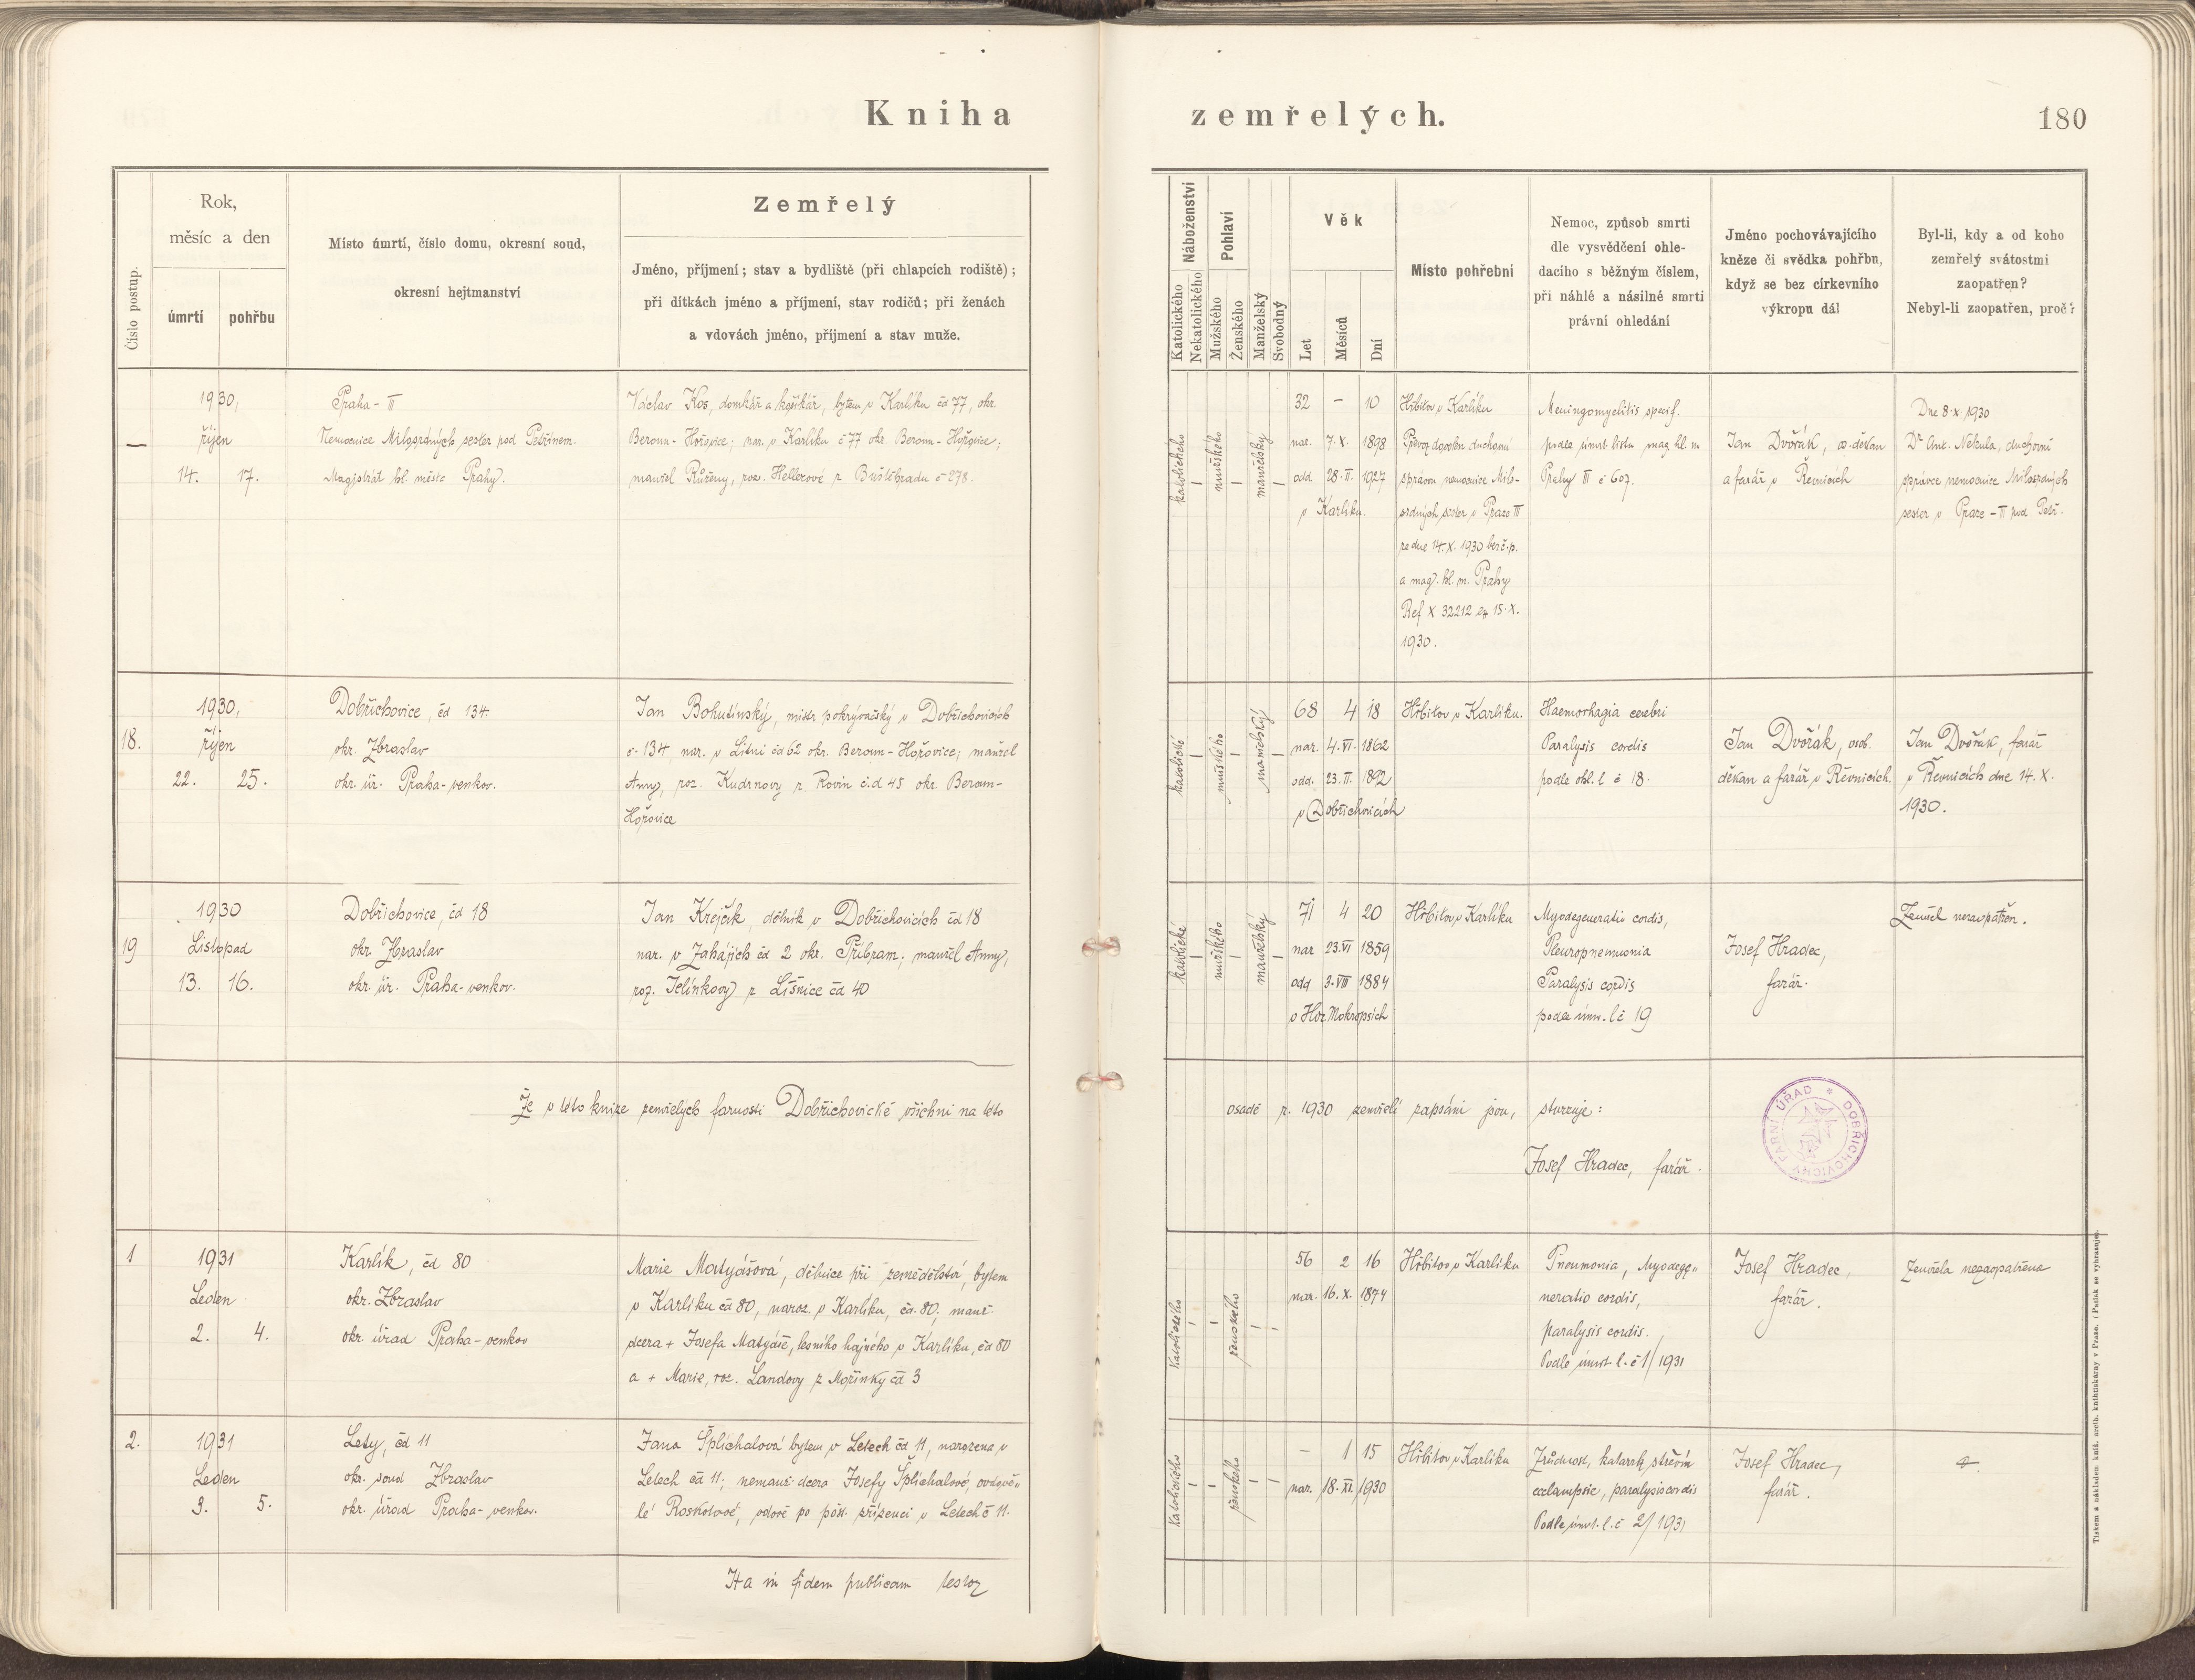 Kniha zemřelých.
180
Číslo postup.
Rok,
měsíc a den
úmrtí
pohřbu
Místo úmrtí, číslo domu, okresní soud,
okresní hejtmanství
Zemřelý
Jméno, příjmení; stav a bydliště (při chlapcích rodiště);
při dítkách jméno a příjmení, stav rodičů; při ženách
a vdovách jméno, příjmení a stav muže.
Náboženství
Katolického
Nekatolického
Pohlaví
Mužského
Ženského
Manželský
Svobodný
Věk
Let
Měsíců
Dní
Místo pohřební
Nemoc, způsob smrti
dle vysvědčení ohle-
dacího s běžným číslem,
při náhlé a násilné smrti
právní ohledání
Jméno pochovávajícího
kněze či svědka pohřbu,
když se bez církevního
výkropu dál
Byl-li, kdy a od koho
zemřelý svátostmi
zaopatřen?
Nebyl-li zaopatřen, proč?
—
1930,
říjen
14. 17.
Praha - III
Nemocnice Milosrdných sester pod Petřínem.
Magistrát hl. města Prahy.
Václav Kos, domkář a košíkář, bytem v Karlíku čd 77, okr.
Beroun - Hořovice; nar. v Karlíku č 77 okr. Beroun - Hořovice;
manžel Růženy, roz. Hellerové z Buštěhradu č 278.
katolického
mužského
manželský
32 — 10
nar. 7. X. 1898
odd. 28. II. 1927
v Karlíku.
Hřbitov v Karlíku
Převoz dovolen duchovní
správou nemocnice Milo-
srdných sester v Praze III
ze dne 14. X. 1930 bez č.p.
a mag. hl. m. Prahy
Ref X 32212 ex 15. X.
1930.
Meningomyelitis specif.
podle úmrt. listu mag. hl. m
Prahy III č 607.
Jan Dvořák, os. děkan
a farář v Řevnicích
Dne 8. X. 1930
Dr Ant. Nekula, duchovní
správce nemocnice Milosrdných
sester v Praze - III pod Petř.
18.
1930,
říjen
22. 25.
Dobřichovice, čd 134.
okr. Zbraslav
okr. úr. Praha - venkov.
Jan Bohutínský, mistr pokrývačský v Dobřichovicích
č. 134, nar. v Litni čd 62 okr. Beroun - Hořovice; manžel
Anny, roz. Kudrnovy z Rovin č.d 45 okr. Beroun-
Hořovice
katolické
mužského
manželský
68 4 18
nar. 4. VI. 1862
odd. 23. II. 1892
v Dobřichovicích
Hřbitov v Karlíku.
Haemorhagia cerebri
Paralysis cordis
podle ohl. l č 18.
Jan Dvořák, osob.
děkan a farář v Řevnicích.
Jan Dvořák, farář
v Řevnicích dne 14. X.
1930.
19
1930
Listopad
13. 16.
Dobřichovice, čd 18
okr. Zbraslav
okr. úr. Praha - venkov.
Jan Krejčík, dělník v Dobřichovicích čd 18
nar. v Zahájích čd 2 okr. Příbram; manžel Anny,
roz. Jelínkovy z Líšnice čd 40
katolické
mužského
manželský
71 4 20
nar 23. VI 1859
odd 3. VIII 1884
v Hor. Mokropsích
Hřbitov v Karlíku
Myodegeneratio cordis,
Pleuropneumonia
Paralysis cordis
podle úmr. l č 19
Josef Hradec,
farář.
Zemřel nezaopatřen.
Že v této knize zemřelých farnosti Dobřichovické všichni na této osadě r. 1930 zemřelí zapsáni jsou, stvrzuje:
Josef Hradec, farář.
FARNÍ ÚŘAD * DOBŘICHOVICKÝ
1
1931
Leden
2. 4.
Karlík, čd 80
okr. Zbraslav
okr. úřad Praha - venkov
Marie Matyášová, dělnice při zemědělství, bytem
v Karlíku čd 80, naroz. v Karlíku, čd. 80, manž.
dcera + Josefa Matyáše, lesního hajného v Karlíku, čd 80
a + Marie, roz. Landovy z Mořinky čd 3
Katolického
ženského
56 2 16
nar. 16. X. 1874
Hřbitov v Karlíku
Pneumonia, Myodege-
neratio cordis,
paralysis cordis.
Podle úmrt. l. č 1/1931
Josef Hradec,
farář.
Zemřela nezaopatřena
2.
1931
Leden
3. 5.
Lety, čd 11
okr. soud Zbraslav
okr. úřad Praha - venkov.
Jana Šplíchalová bytem v Letech čd 11, narozena v
Letech čd 11; nemanž. dcera Josefy Šplíchalové, ovdově-
lé Roskotové, vdově po pošt. zřízenci v Letech č 11.
Katolického
ženského
— 1 15
nar. 18. XI. 1930
Hřbitov v Karlíku
Zrůdnost, katarrh střevní
ecclampsie, paralysis cordis
Podle úmrt. l. č 2/1931
Josef Hradec,
farář.
Ita in fidem publicam testor
Tiskem a nákladem kníž. arcib. knihtiskárny v Praze. (Patisk se vyhrazuje.)